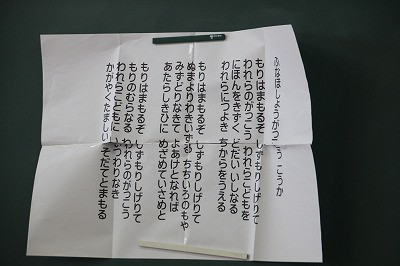 ふなほしょうがっこう こうか
もりはまもるぞ しずもりしげりて
われらのがっこう われらこどもを
にほんをきずく どだい いしなる
われらにつよき ちからをうえる
もりはまもるぞ しずもりしげりて
ぬまよりわきいずる ちちいろのもや
みずどりなきて よあけとなれば
あたらしきひに めざめていさめと
もりはまもるぞ しずもりしげりて
もりのむらなる われらのがっこう
われらこどもに いつわりなき
かがやくたましい そだてとまもる